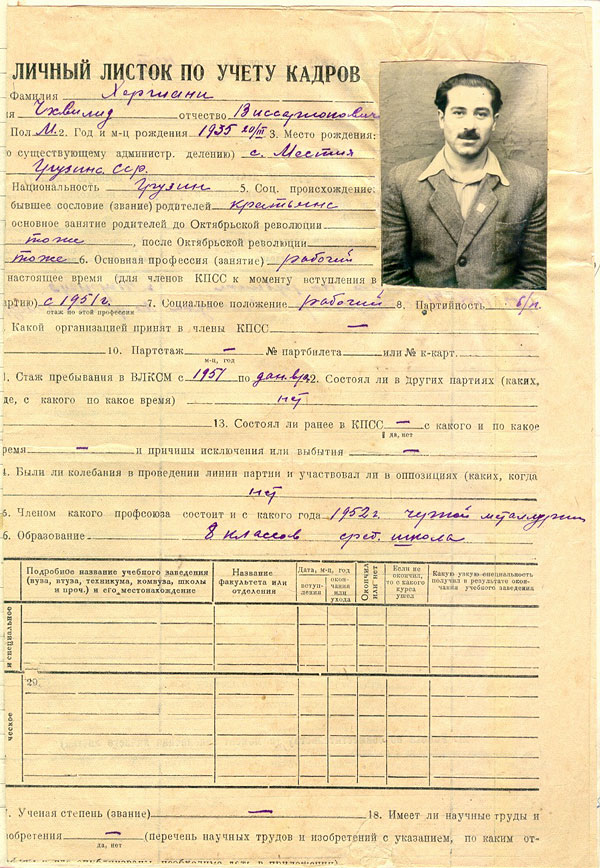 ЛИЧНЫЙ ЛИСТОК ПО УЧЕТУ КАДРОВ
Фамилия Хергиани
я Чхвилид отчество Виссарионович
Пол М. 2. Год и м-ц рождения 1935 20/III 3. Место рождения:
о существующему администр. делению) с. Местия
Грузинс. ССР.
Национальность Грузин 5. Соц. происхождение:
бывшее сословие (звание) родителей крестьянс
основное занятие родителей до Октябрьской революции
тоже, после Октябрьской революции
тоже 6. Основная профессия (занятие) рабочий
настоящее время (для членов КПСС к моменту вступления в
артию) с 1951 г. 7. Социальное положение рабочий 8. Партийность б/п.
стаж по этой профессии
Какой организацией принят в члены КПСС —
10. Партстаж — № партбилета или № к-карт.
м-ц, год
1. Стаж пребывания в ВЛКСМ с 1951 по 2. Состоял ли в других партиях (каких,
де, с какого по какое время) нет
13. Состоял ли ранее в КПСС — с какого и по какое
да, нет
ремя — и причины исключения или выбытия —
4. Были ли колебания в проведении линии партии и участвовал ли в оппозициях (каких, когда
нет
5. Членом какого профсоюза состоит и с какого года 1952 г. черной металлургии
6. Образование 8 классов сред. школа
Подробное название учебного заведения (вуза, втуза, техникума, комвуза, школы и проч.) и его местонахождение
Название факультета или отделения
Дата, м-ц, год
вступления
окончания или ухода
Окончил или нет
Если не окончил, то с какого курса ушел
Какую узкую специальность получил в результате окончания учебного заведения
и специальное
29.
ческое
. Ученая степень (звание) — 18. Имеет ли научные труды и
зобретения — (перечень научных трудов и изобретений с указанием, по каким от-
да, нет